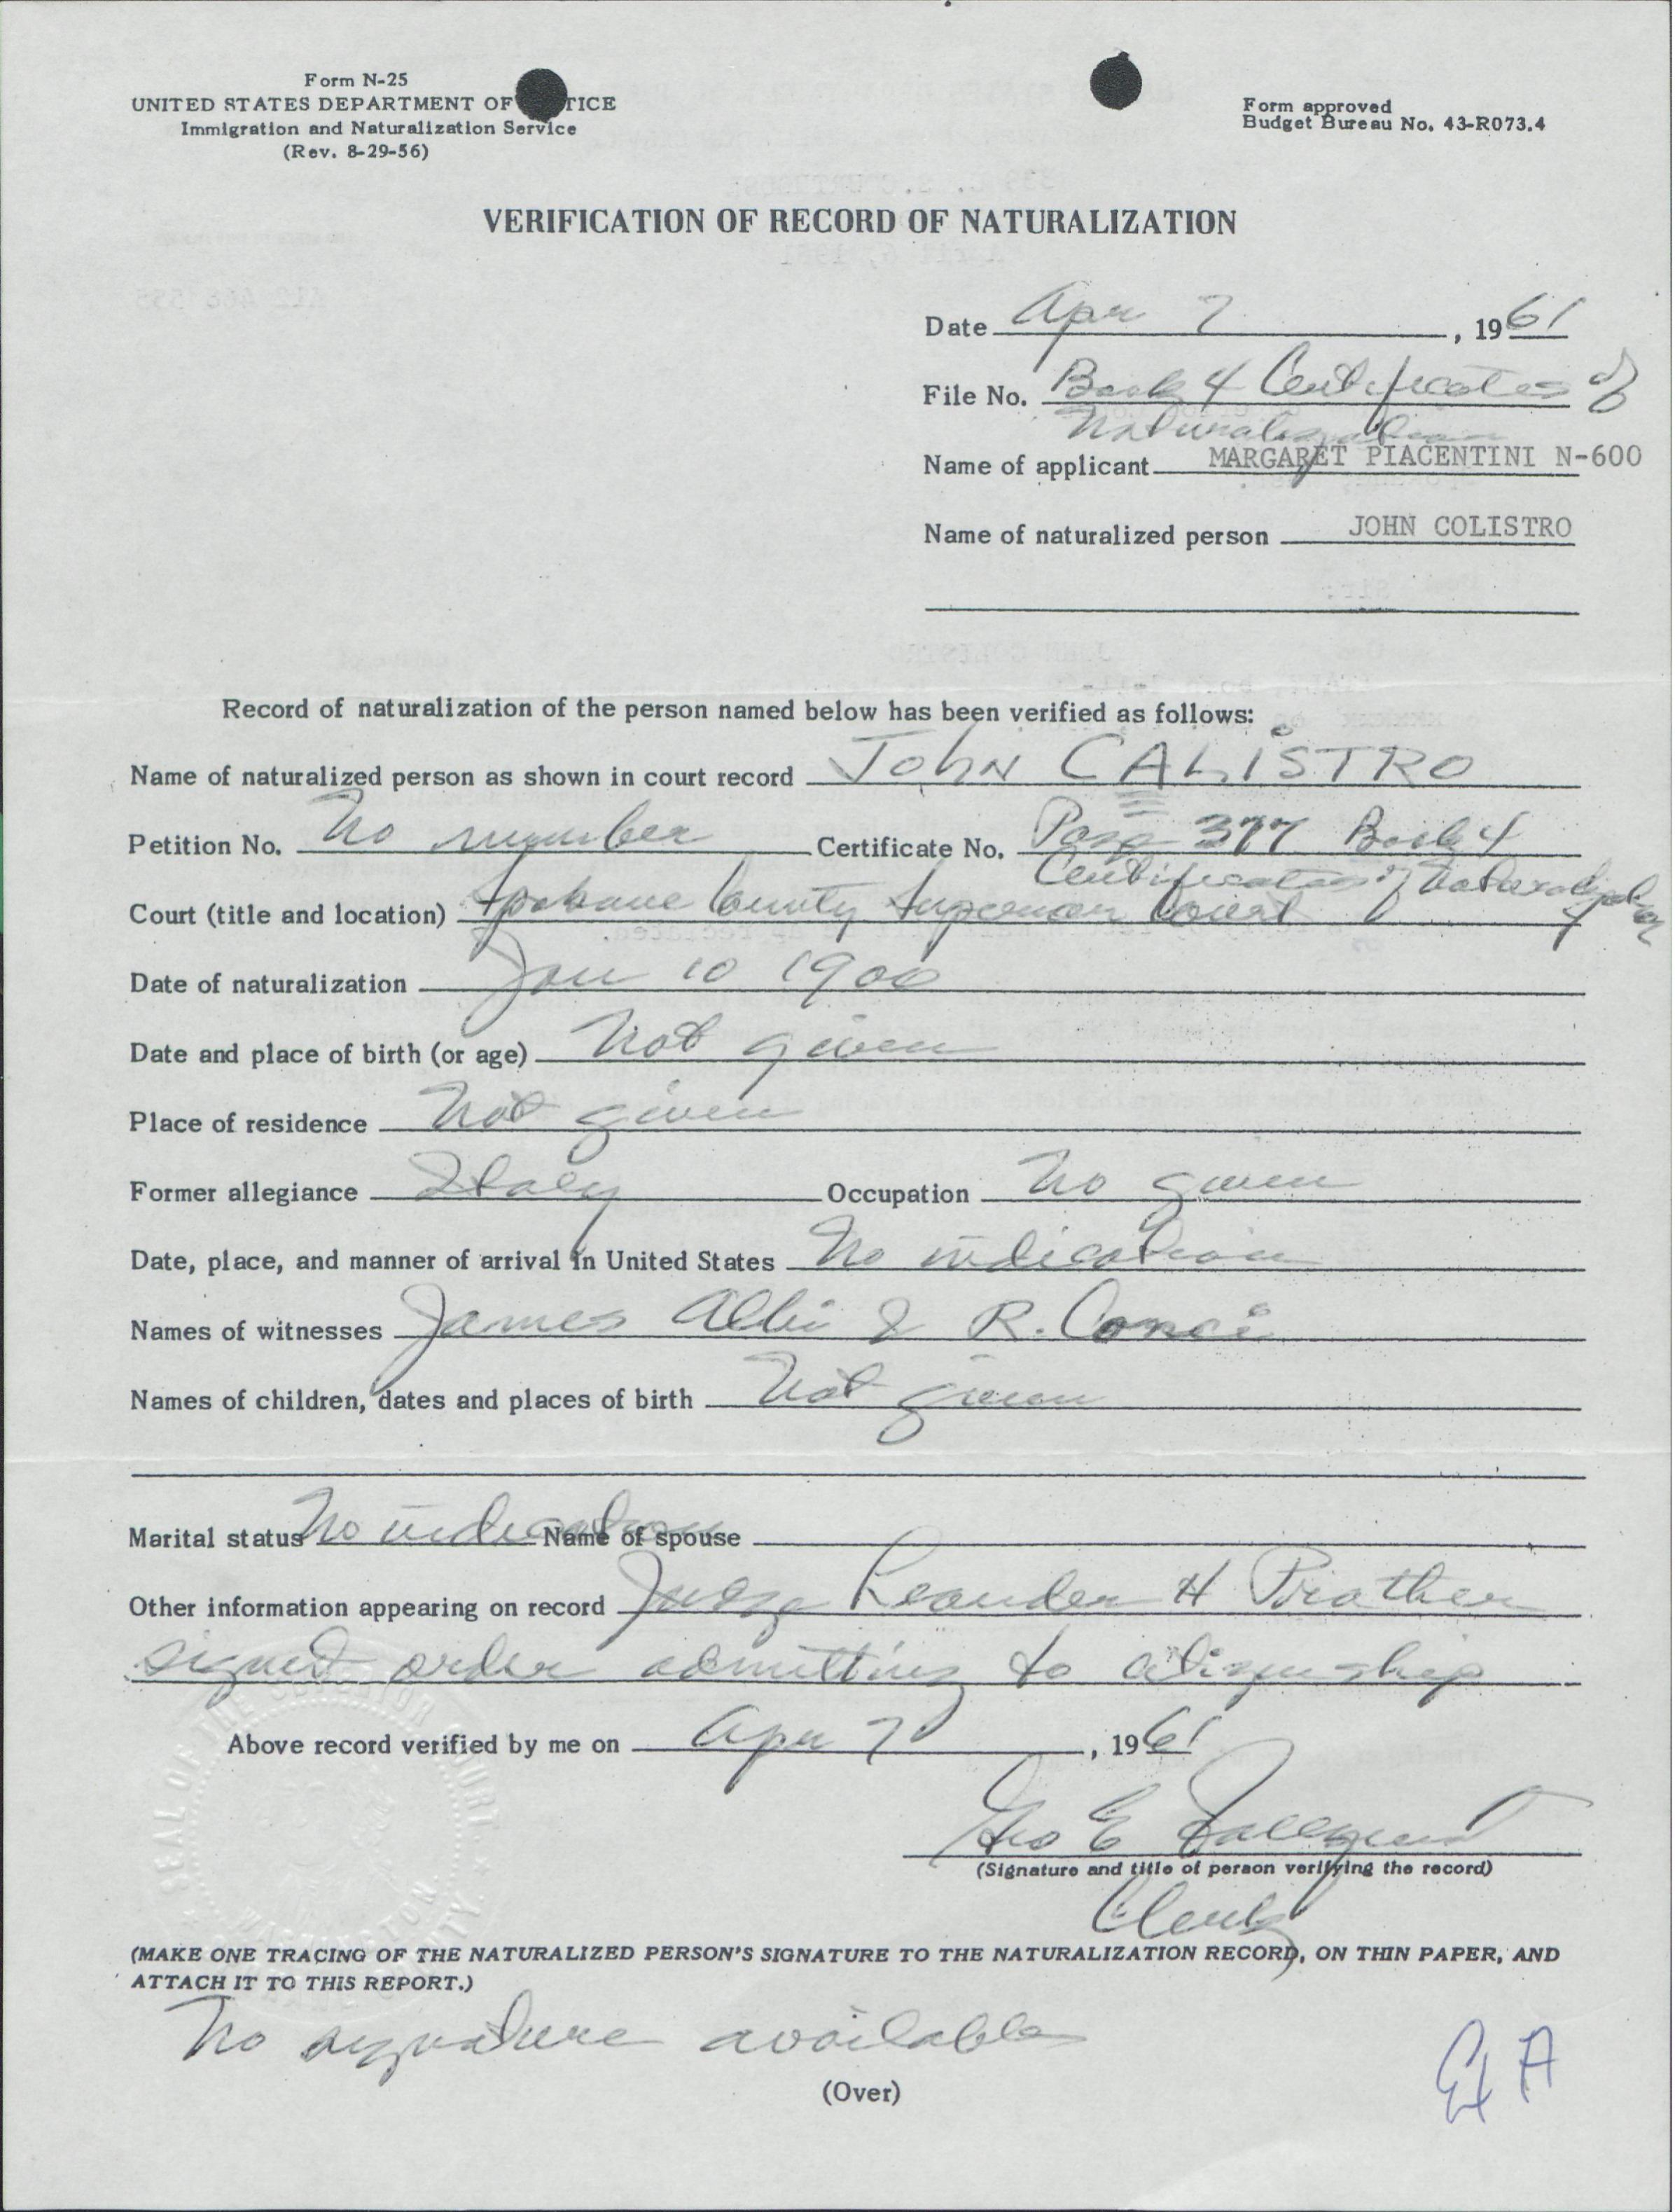 Form N-25
UNITED STATES DEPARTMENT OF TICE
Immigration and Naturalization Service
(Rev. 8-29-56)
Form approved
Budget Bureau No. 43-R073.4
VERIFICATION OF RECORD OF NATURALIZATION
Date Apr 7, 1961
File No. Book 4 Certificates of
Naturalization
Name of applicant MARGARET PIACENTINI N-600
Name of naturalized person JOHN COLISTRO
Record of naturalization of the person named below has been verified as follows:
Name of naturalized person as shown in court record JOHN CALISTRO
Petition No. No number Certificate No. Page 377 Book 4
Certificates of Naturalization
Court (title and location) Spokane County Superior Court
Date of naturalization Jan 10 1900
Date and place of birth (or age) Not given
Place of residence Not given
Former allegiance Italy Occupation No given
Date, place, and manner of arrival in United States No indication
Names of witnesses James Albi & R. Conci
Names of children, dates and places of birth Not given
Marital status No indication Name of spouse
Other information appearing on record Judge Leander H Prather
signed order admitting to citizenship
Above record verified by me on Apr 7, 1961
Geo E
(Signature and title of person verifying the record)
Clerk
(MAKE ONE TRACING OF THE NATURALIZED PERSON'S SIGNATURE TO THE NATURALIZATION RECORD, ON THIN PAPER, AND
ATTACH IT TO THIS REPORT.)
No signature available
(Over)
Ex A
SEAL OF THE SUPERIOR COURT
WASHINGTON